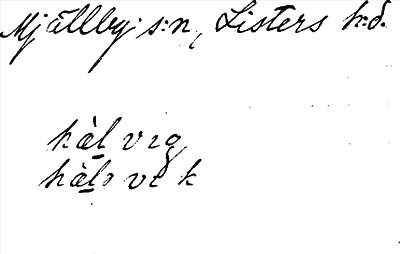 Mjällby s:n, Listers h:d.
hàl vıg
hàlə vı k